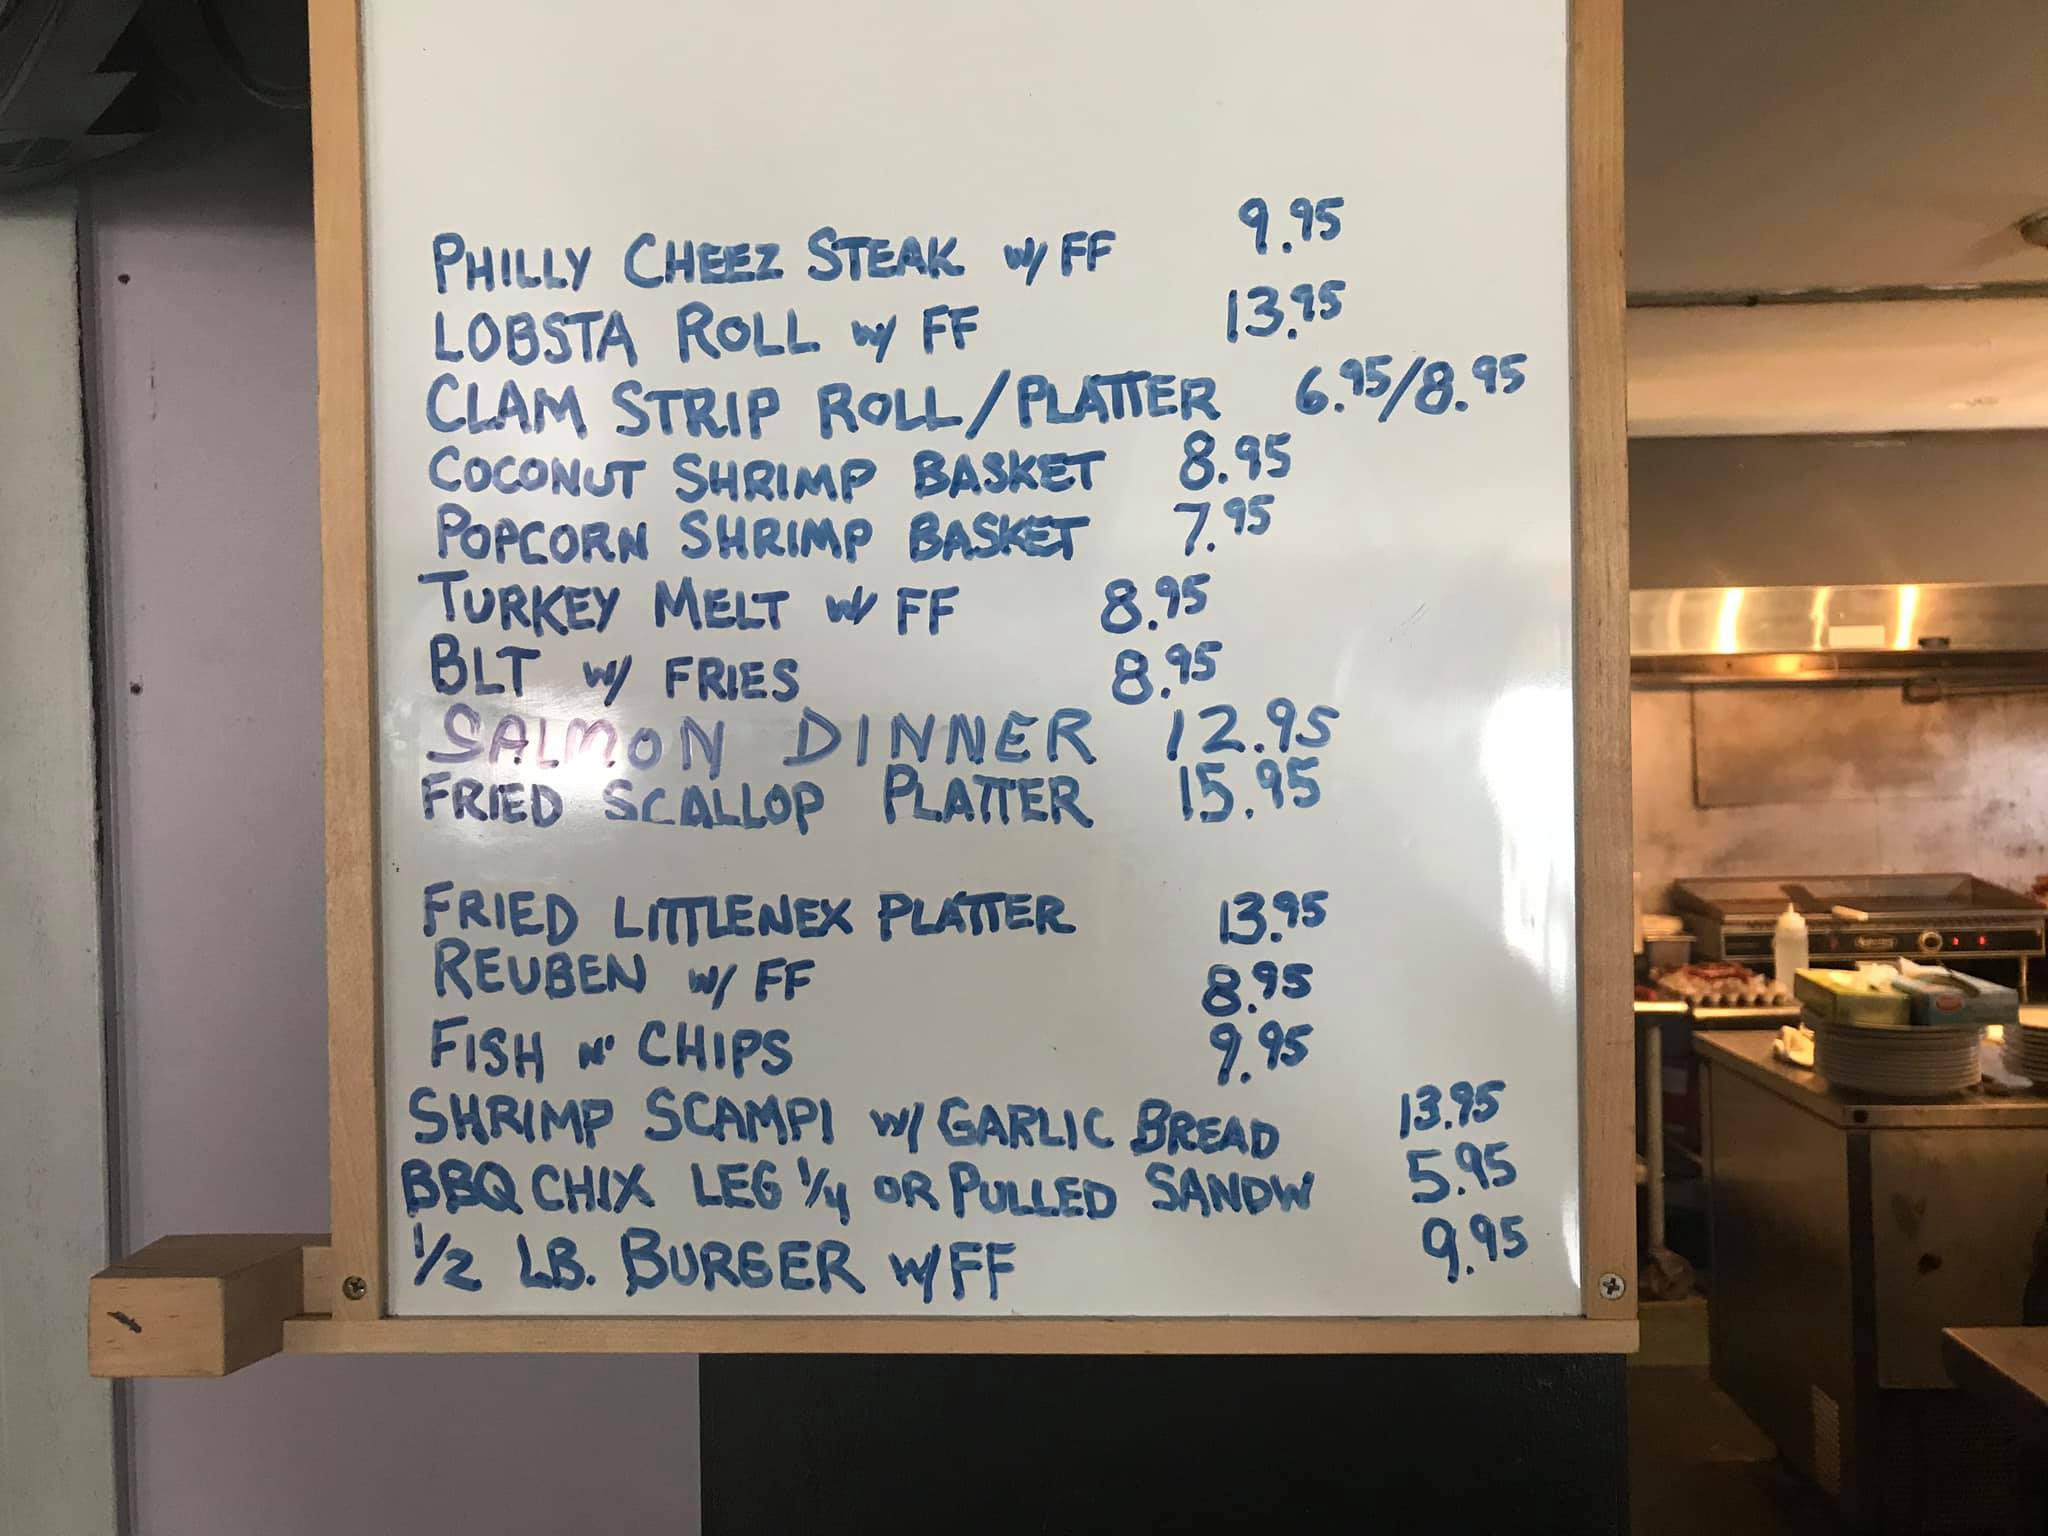 PHILLY CHEEZ STEAK w/ FF 9.95
LOBSTA ROLL w/ FF 13.95
CLAM STRIP ROLL/PLATTER 6.95/8.95
COCONUT SHRIMP BASKET 8.95
POPCORN SHRIMP BASKET 7.95
TURKEY MELT w/ FF 8.95
BLT w/ FRIES 8.95
SALMON DINNER 12.95
FRIED SCALLOP PLATTER 15.95
FRIED LITTLENEX PLATTER 13.95
REUBEN w/ FF 8.95
FISH N' CHIPS 9.95
SHRIMP SCAMPI w/ GARLIC BREAD 13.95
BBQ CHIX LEG 1/4 OR PULLED SANDW 5.95
1/2 LB. BURGER w/FF 9.95